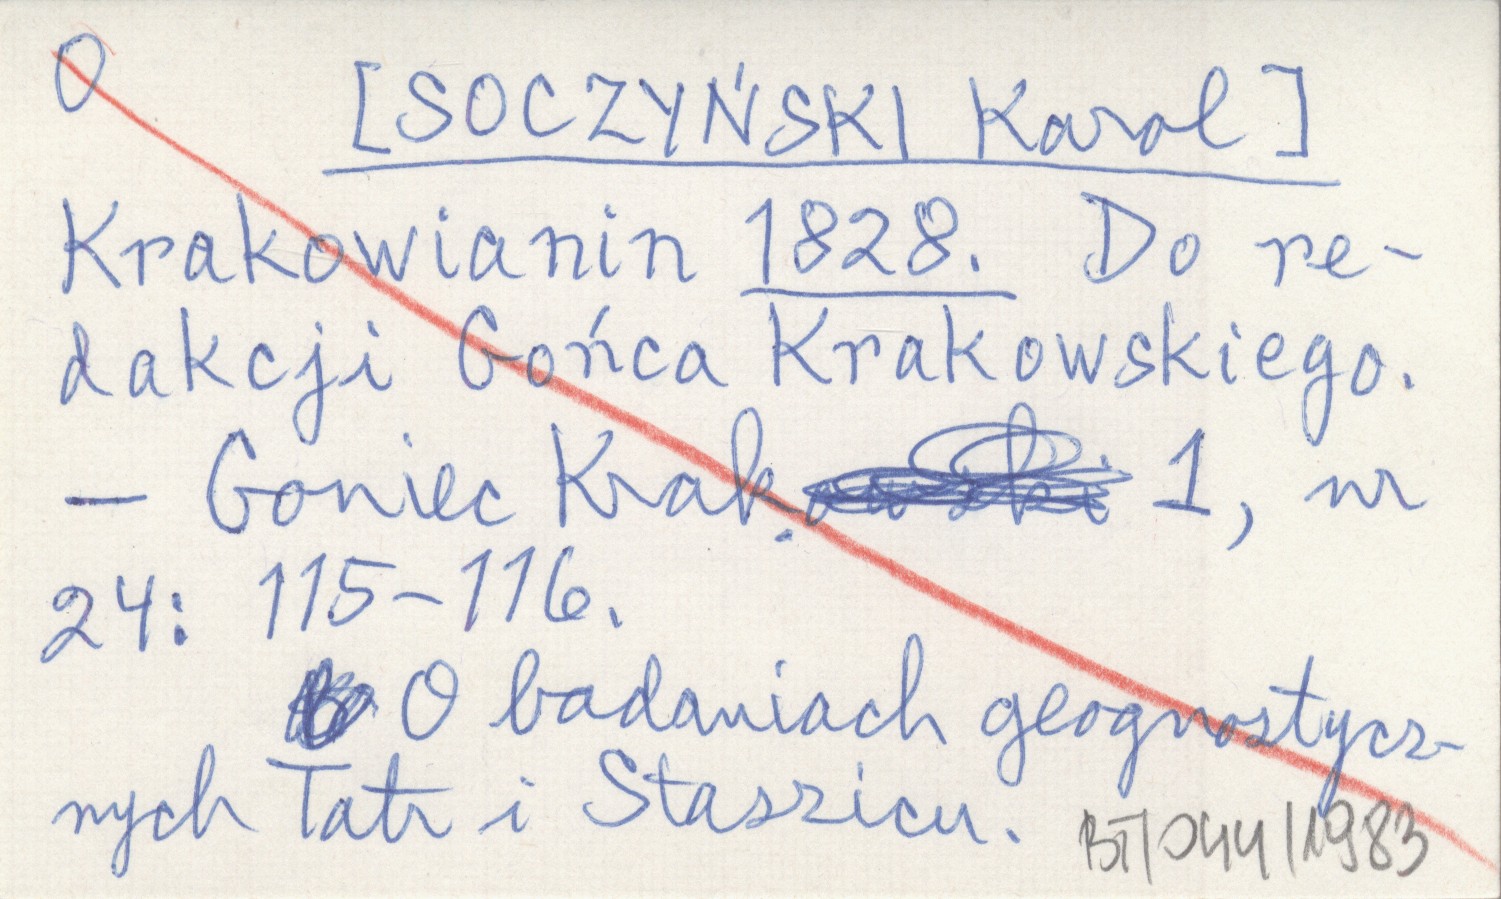 O
[SOCZYŃSKI Karol]
Krakowianin 1828. Do re-
dakcji Gońca Krakowskiego.
— Goniec Krak. 1, nr
24: 115-116.
O badaniach geognostycz-
nych Tatr i Staszicu.
BT/044/1983